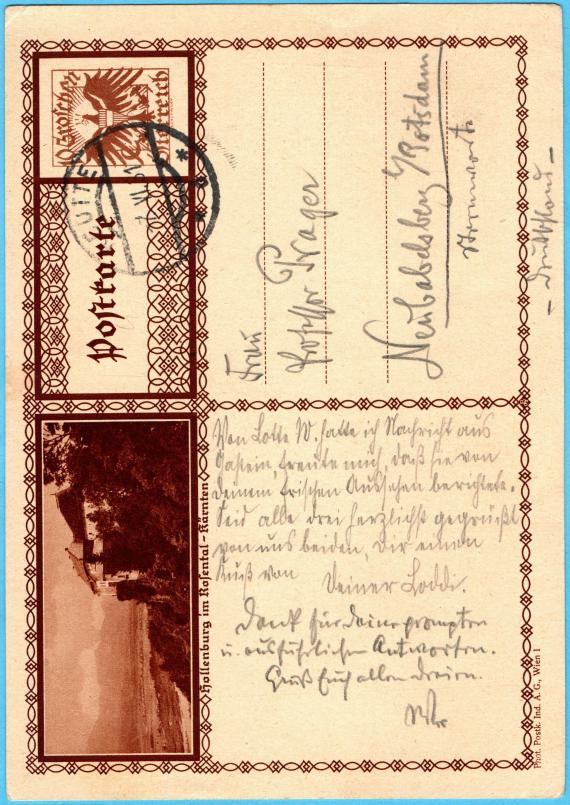 10 Groschen
Österreich
Postkarte
Frau
Professor Prager
Neubabelsberg b/Potsdam
Sternwarte
- Deutschland -
Von Lotte W. hatte ich Nachricht aus
Gastein, freute mich, daß sie von
Deinem frischen Aussehen berichtete.
Seid alle drei herzlichst gegrüßt
von uns beiden, Dir einen
Kuß von Deiner Loddi.
Dank für Deine prompten
u. ausführlichen Antworten.
Gruß Euch allen dreien.
Hollenburg im Rosental - Kärnten
Phot. Postk. Ind. A. G., Wien 1